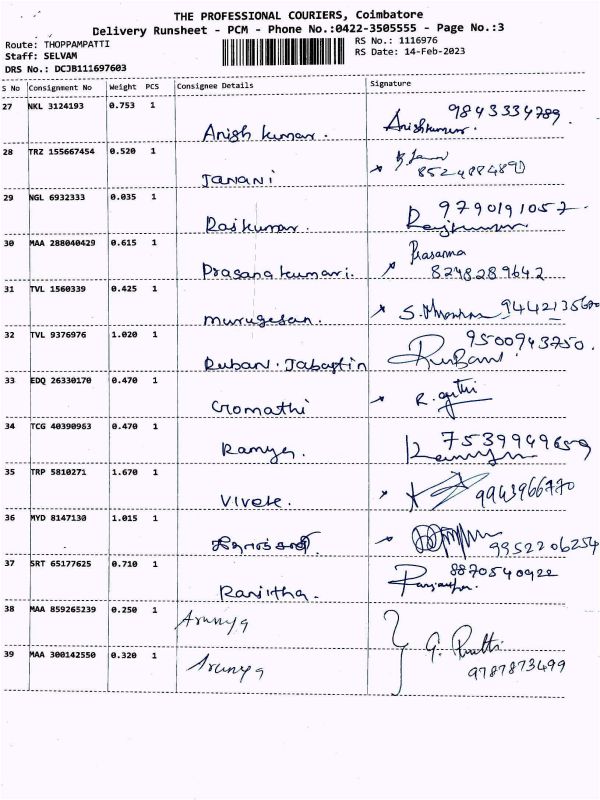 THE PROFESSIONAL COURIERS, Coimbatore
Delivery Runsheet - PCM - Phone No.:0422-3505555 - Page No.:3
Route: THOPPAMPATTI RS No.: 1116976
Staff: SELVAM RS Date: 14-Feb-2023
DRS No.: DCJB111697603
S No Consignment No Weight PCS Consignee Details Signature
27 NKL 3124193 0.753 1 Anish kumar. Anishkumar. 9843334789
28 TRZ 155667454 0.520 1 Janani
29 NGL 6932333 0.035 1 Rajkumar. Rajkumar. 9790191057
30 MAA 288040429 0.615 1 Prasanakumari. Prasanna 8248289642
31 TVL 1560339 0.425 1 murugesan.
32 TVL 9376976 1.020 1 Ruban. Jabastin Ruban. 9500943750.
33 EDQ 26330170 0.470 1 Gomathi
34 TCG 40390963 0.470 1 Ramya.
35 TRP 5810271 1.670 1 Vivek. 9943966770
36 MYD 8147130 1.015 1 9952206254
37 SRT 65177625 0.710 1 Ranjitha. 8870540922
38 MAA 859265239 0.250 1 Arunya
39 MAA 300142550 0.320 1 Arunya 9787873499